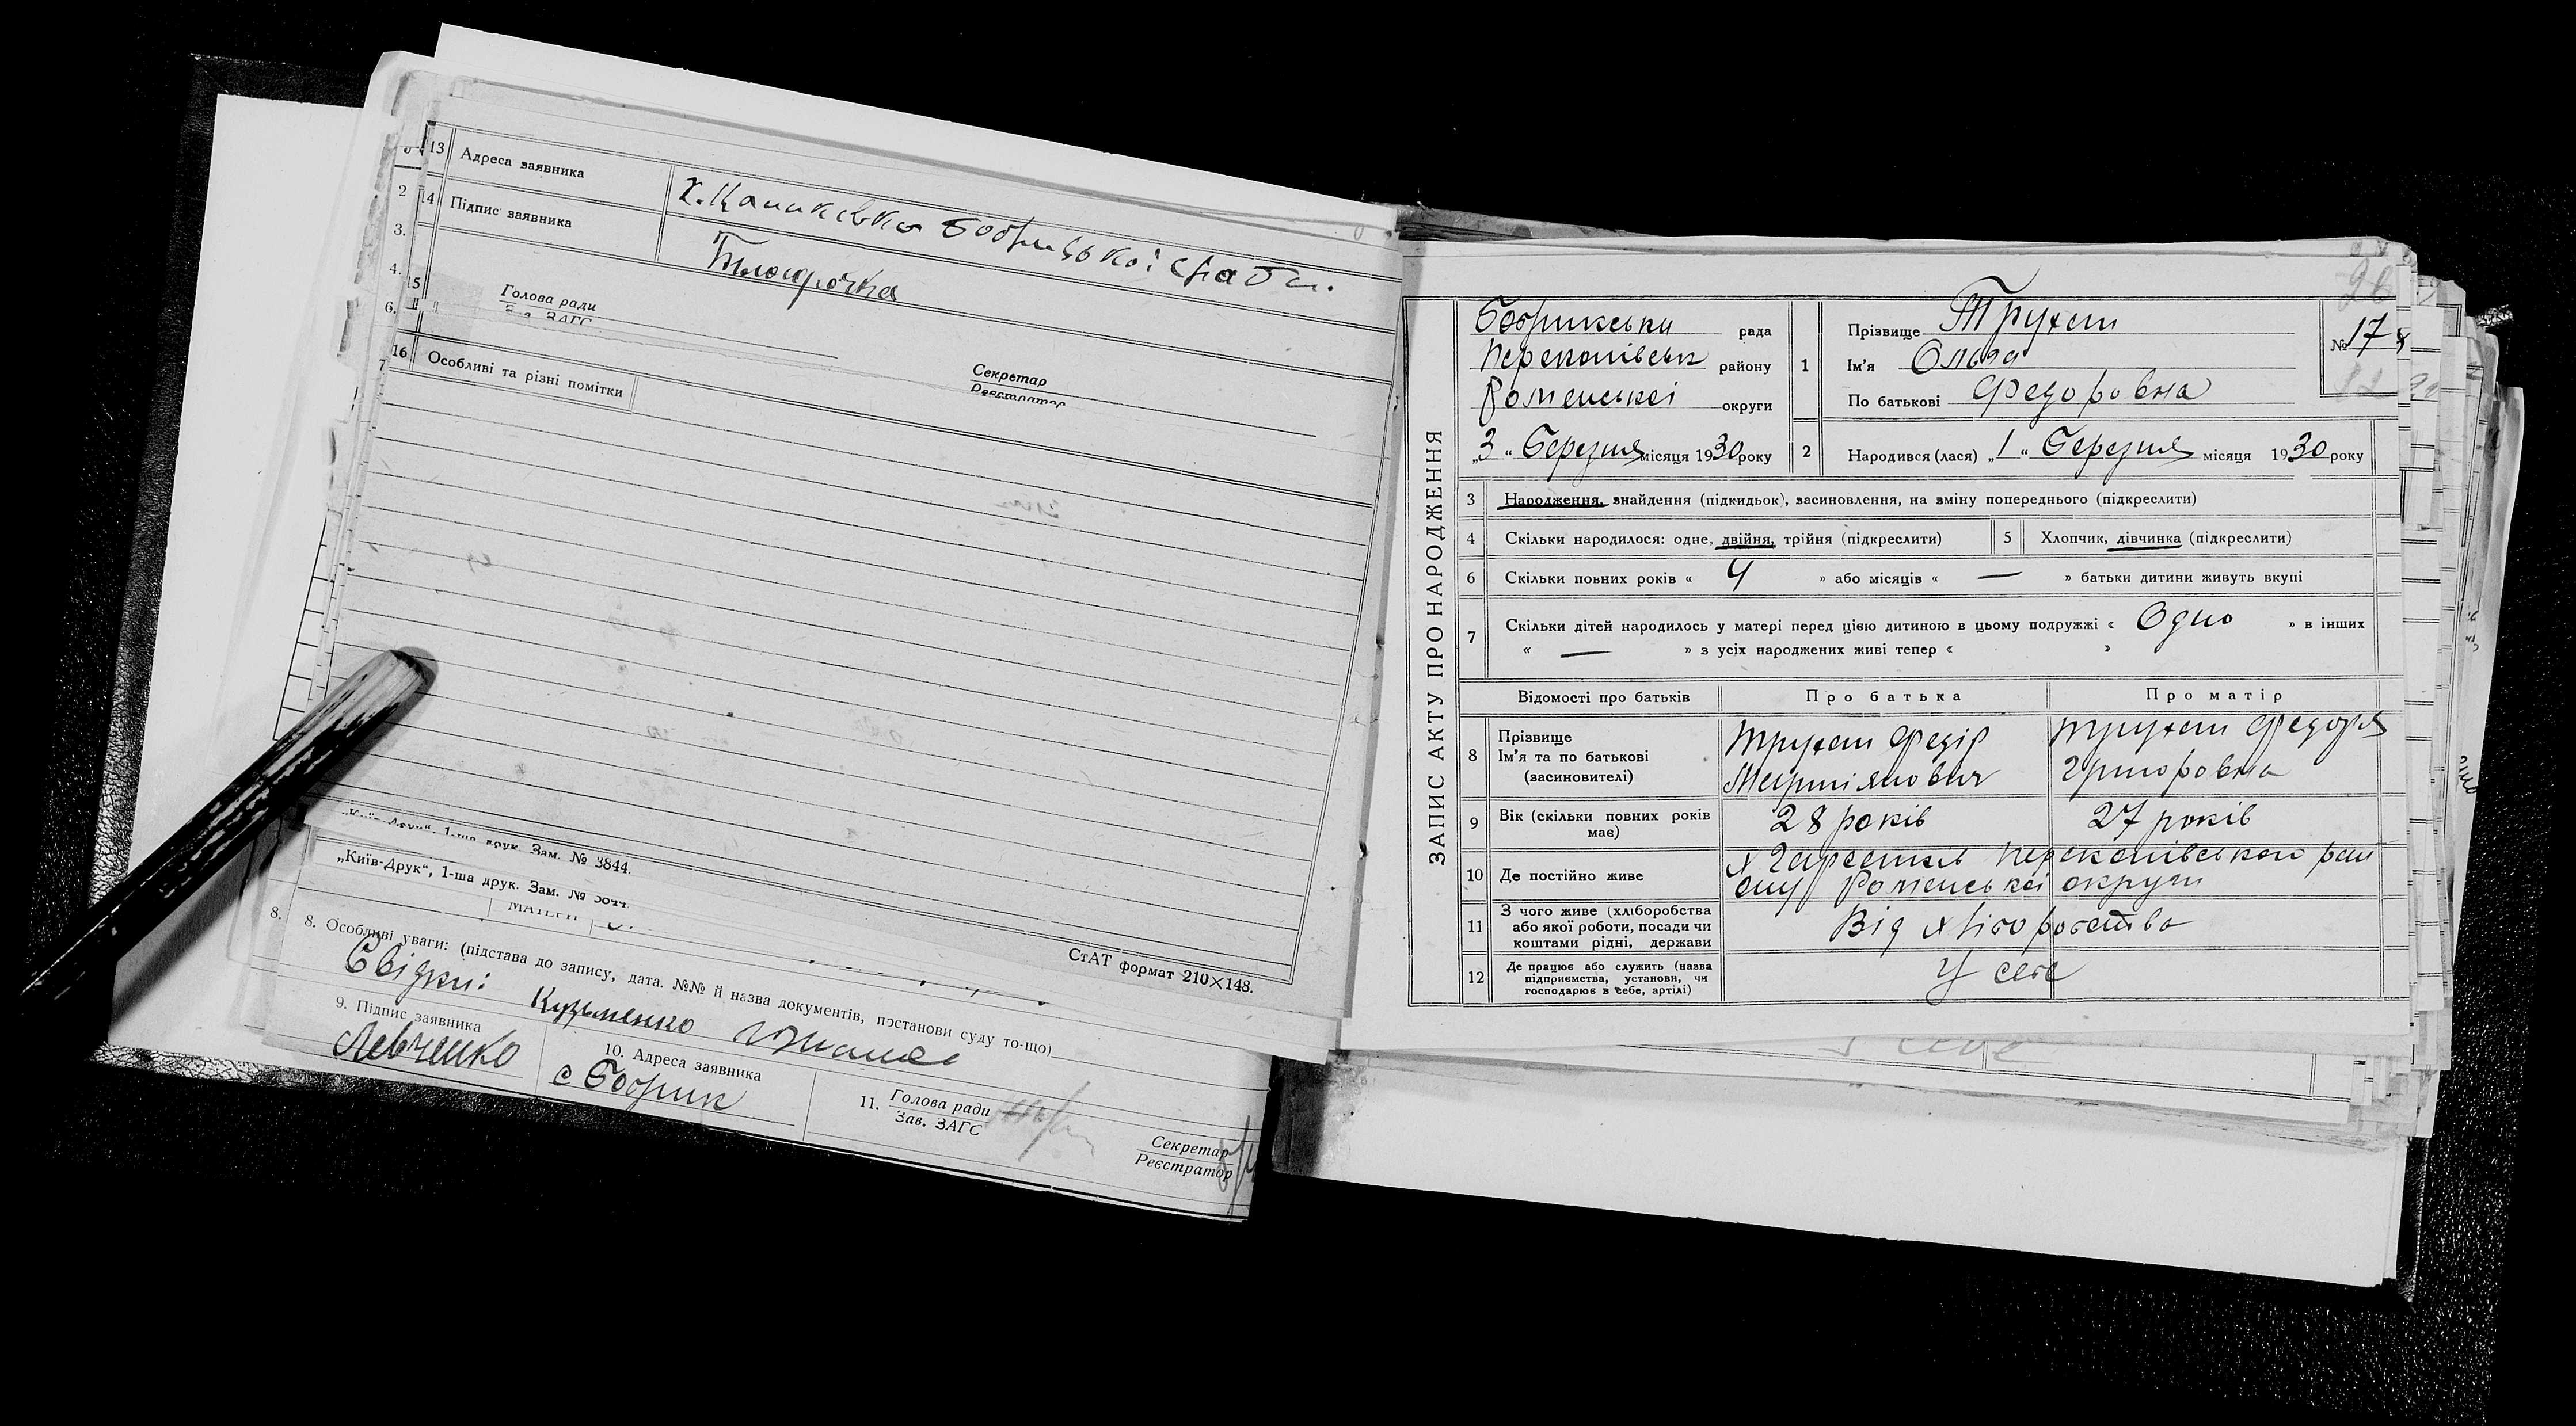 13 Адреса заявника
х. Кашківка Бобрицької
14 Підпис заявника
15 Голова ради
Зав. ЗАГС
Секретар
Реєстратор
16 Особливі та різні помітки
2
3.
4.
6.
7
„Київ-Друк“, 1-ша друк. Зам. № 3844.
„Київ-Друк“, 1-ша друк. Зам. № 3844.
СтАТ формат 210×148.
8. 8. Особливі уваги: (підстава до запису, дата. №№ й назва документів, постанови суду то-що)
Свідки: Кузьменко
9. Підпис заявника
Левченко
10. Адреса заявника
с Бобрик
11. Голова ради
Зав. ЗАГС
Секретар
Реєстратор
ЗАПИС АКТУ ПРО НАРОДЖЕННЯ
Бобрикська рада
Перекопівськ району
Роменської округи
„3“ Березня місяця 1930 року
1 Прізвище Трухан
Ім'я Ольга
По батькові Федоровна
№ 17
2 Народився (лася) „1“ Березня місяця 1930 року
3 Народження, знайдення (підкидьок), засиновлення, на зміну попереднього (підкреслити)
4 Скільки народилося: одне, двійня, трійня (підкреслити) 5 Хлопчик, дівчинка (підкреслити)
6 Скільки повних років « 4 » або місяців « — » батьки дитини живуть вкупі
7 Скільки дітей народилось у матері перед цією дитиною в цьому подружжі « Одно » в інших
« — » з усіх народжених живі тепер « »
Відомості про батьків Про батька Про матір
8 Прізвище
Ім'я та по батькові
(засновителі)
Трухан Федір
Мартіянович
Трухан Федора
Григоровна
9 Вік (скільки повних років має) 28 років 27 років
10 Де постійно живе
Перекопівського рай
ону Роменської округи
11 З чого живе (хліборобства
або якої роботи, посади чи
коштами рідні, держави
Від хліборобства
12 Де працює або служить (назва
підприємства, установи, чи
господарює в себе, артілі)
У себе